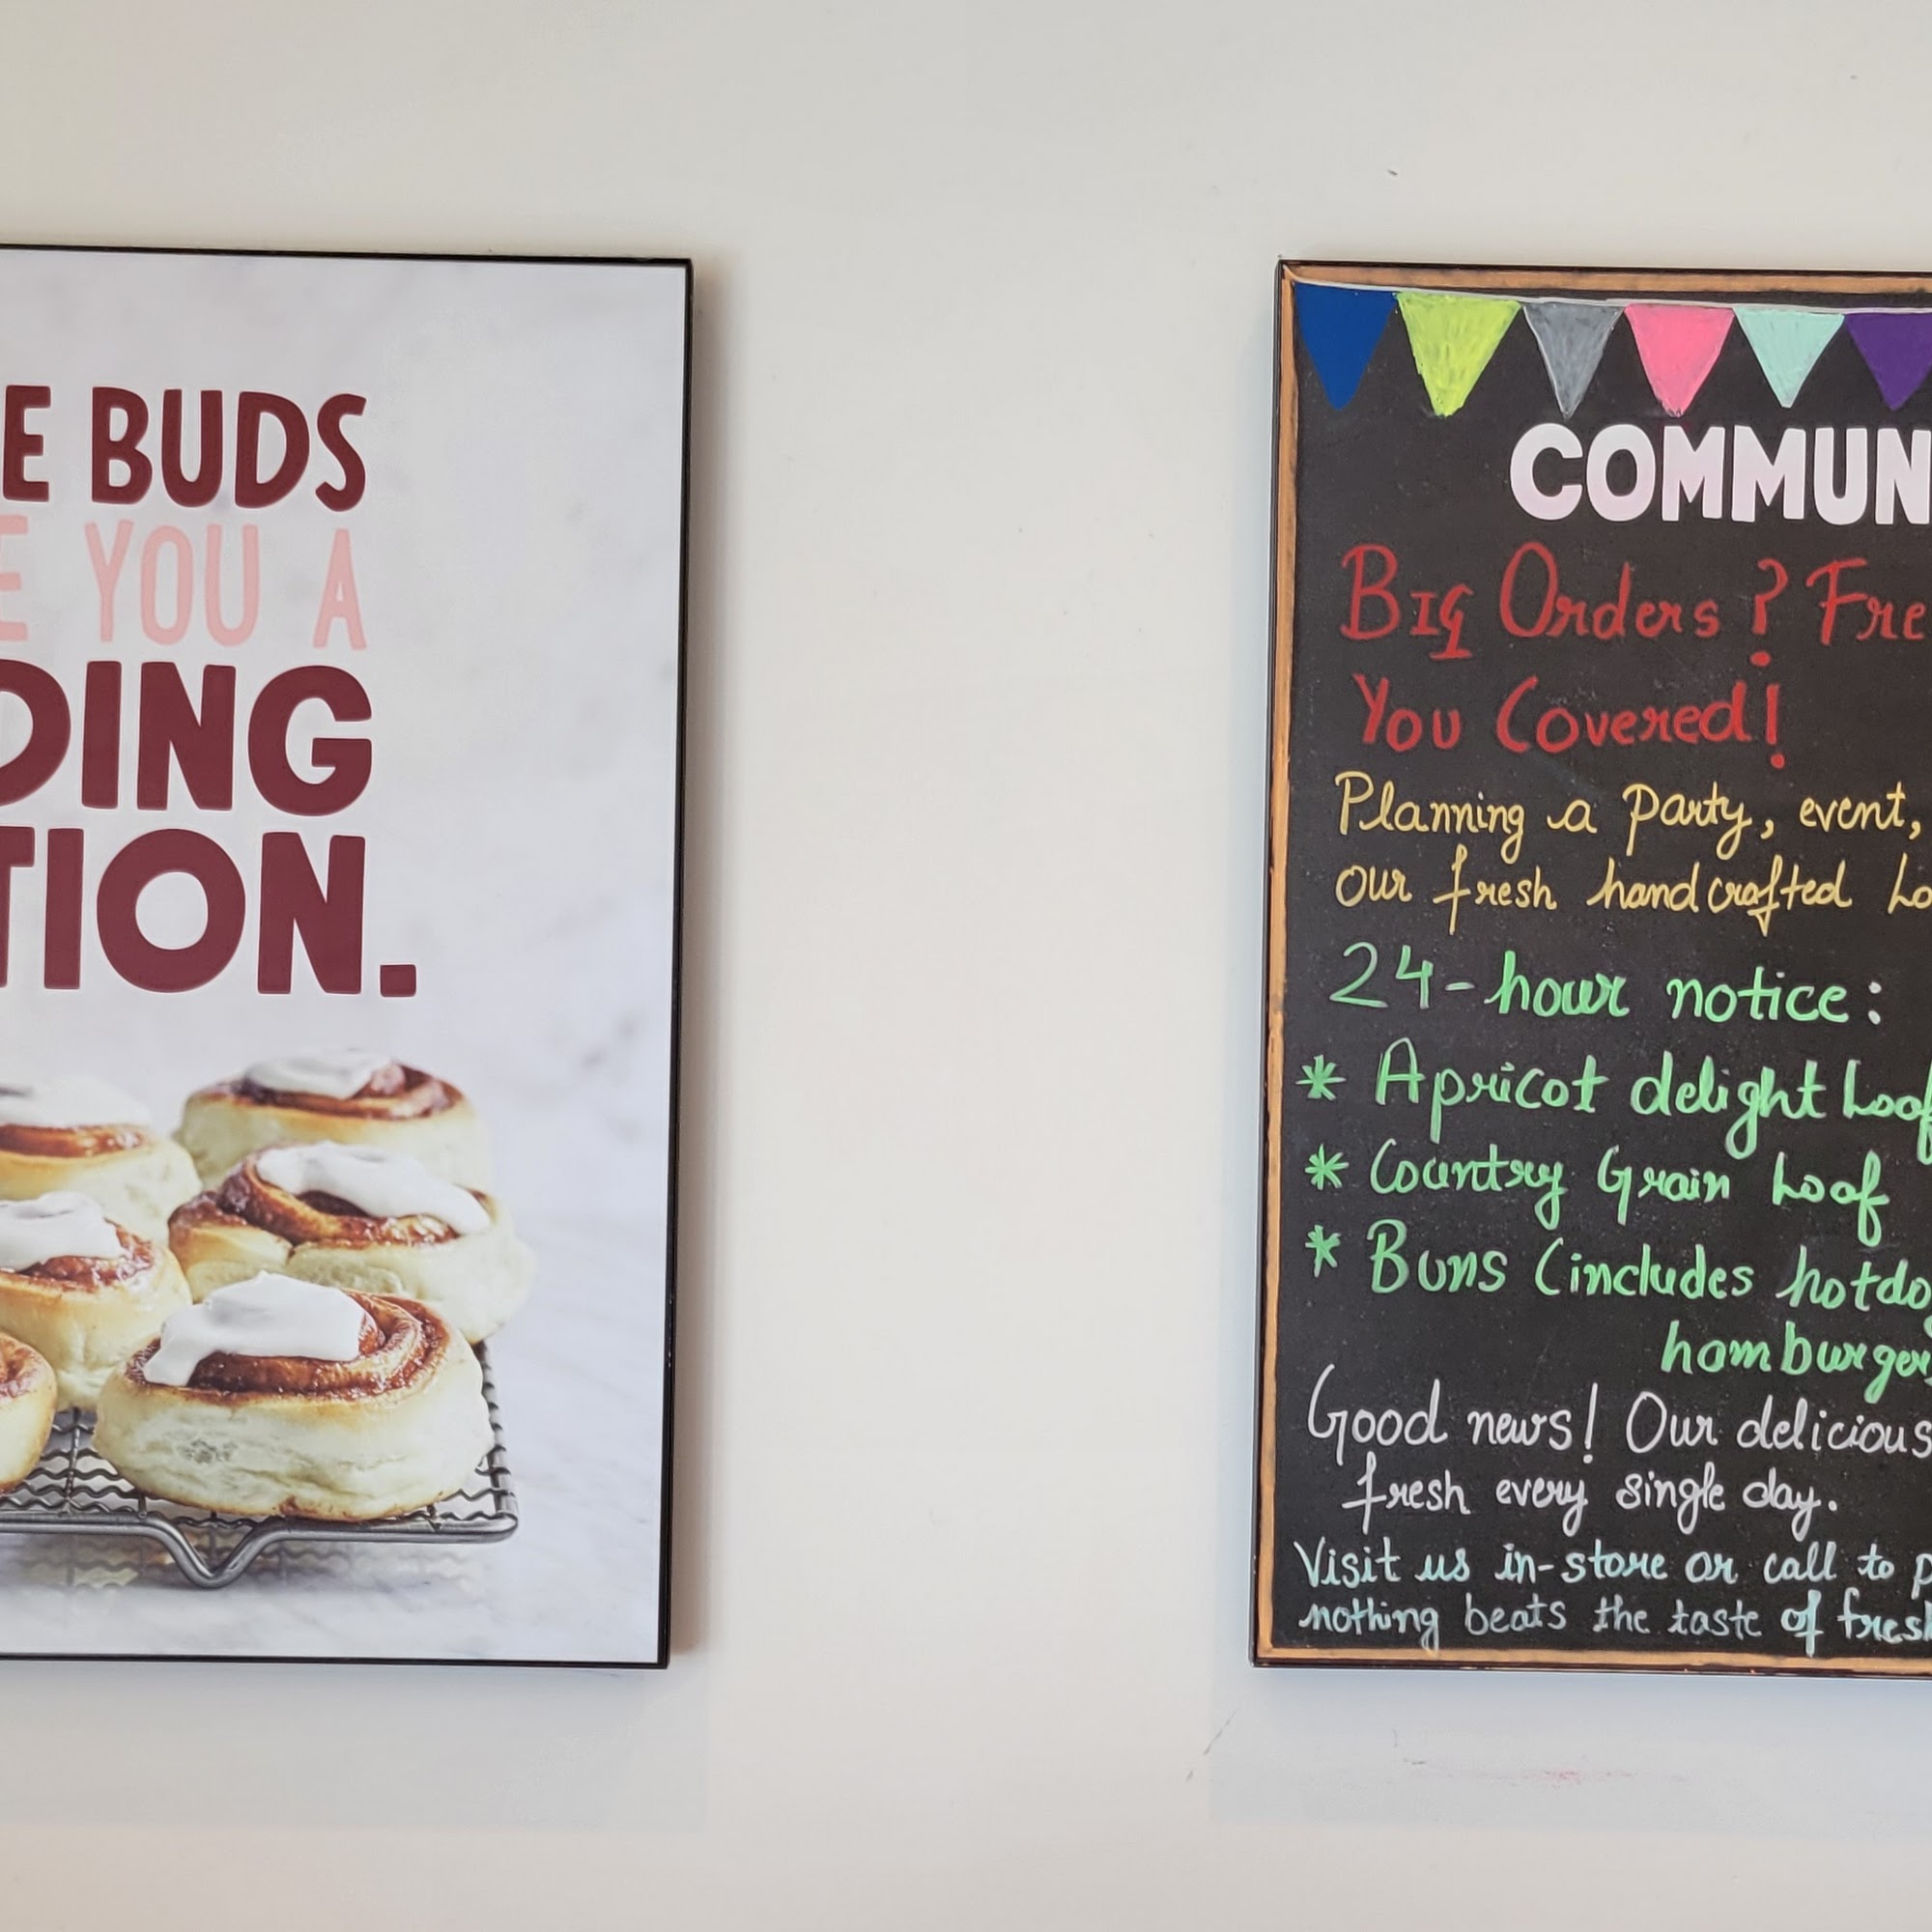 E BUDS
E YOU A
DING
TION.
COMMUN
BIG Orders? Fre
You Covered!
Planning a party, event,
our fresh handcrafted Lo
24-hour notice:
* Apricot delight Loaf
* Country Grain Loaf
* Buns (includes hotdog
hamburger
Good news! Our delicious
fresh every single day.
Visit us in-store or call to p
nothing beats the taste of fresh